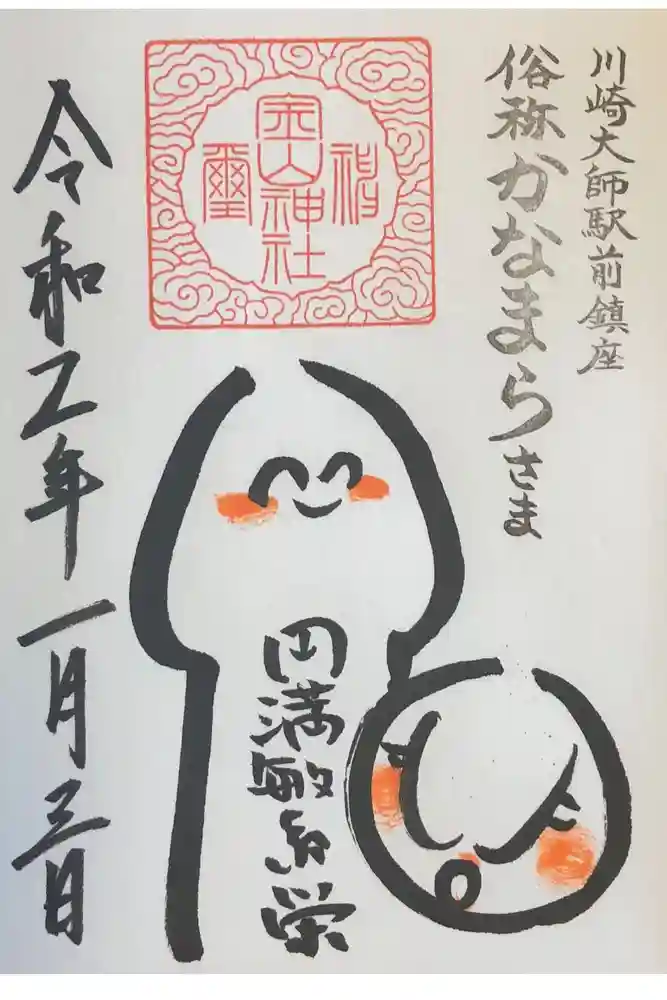 川崎大師駅前鎮座
俗称かなまらさま
金山神社
璽
円満繁栄
令和二年一月三日